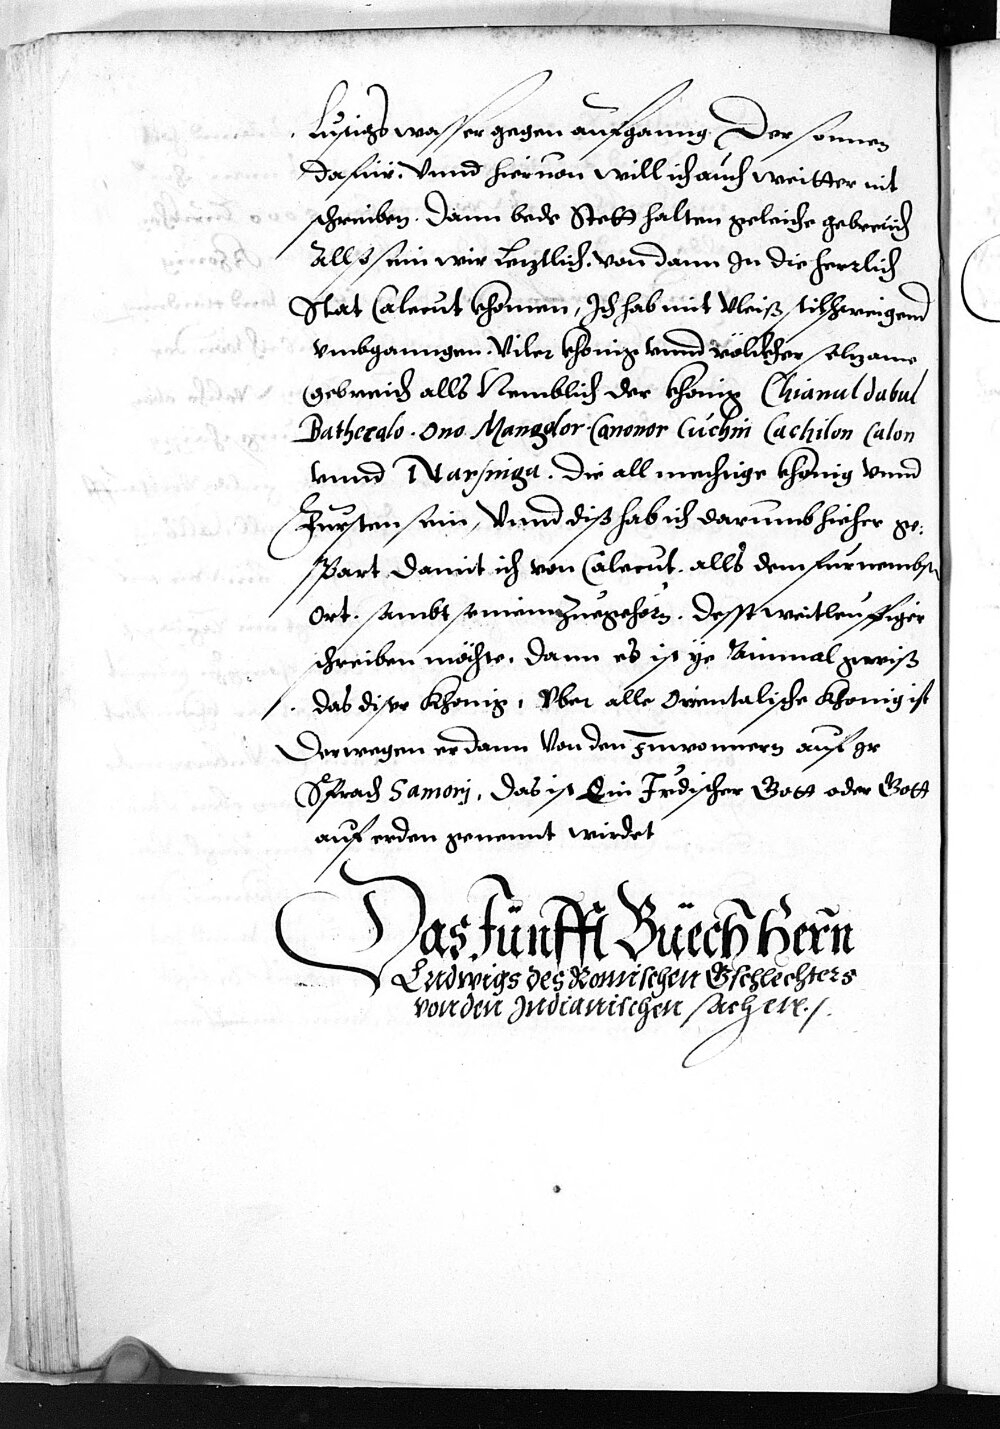 Lustigs wasser gegen aufganng Der sonnen
dafür. Vnnd hieruon will ich auch weitter nit
schreiben. Dann bede Stett halten geleiche gebreuch
Allso sein wir Letztlich. von dann In die herrlich
Stat Calecut khomen, Ich hab mit Vleiß stilschweigend
vmbganngen. Viler khönig vnnd völckher selzame
gebreich alls Nemblich der khönig Chianul dabul
Bathecalo. Ono. Mangdor. Canonor Cuchin Cachilon Calon
vnnd Narsinga. Die all mechtige khönig vnnd
Fürsten sein, Vnnd diß hab ich darumb hieher ge:
spart damit ich von Calecut. alls dem furnembsten
Ort. sambt seinem Zuegehörn. desst weitleuffiger
schreiben möchte. dann es ist ye Ainmal gwiß
das diser khönig, Vber alle Orientalische khönig ist
Derwegen er dann Von den Inwonnern auf Ir
Sprach Samorj, das ist Ein Irdischer Gott oder Gott
auf erden genennt wirdet
Das Fünfft Buech Hern
Ludwigs des Romischen Gschlechters
von den Indianischen sachen.